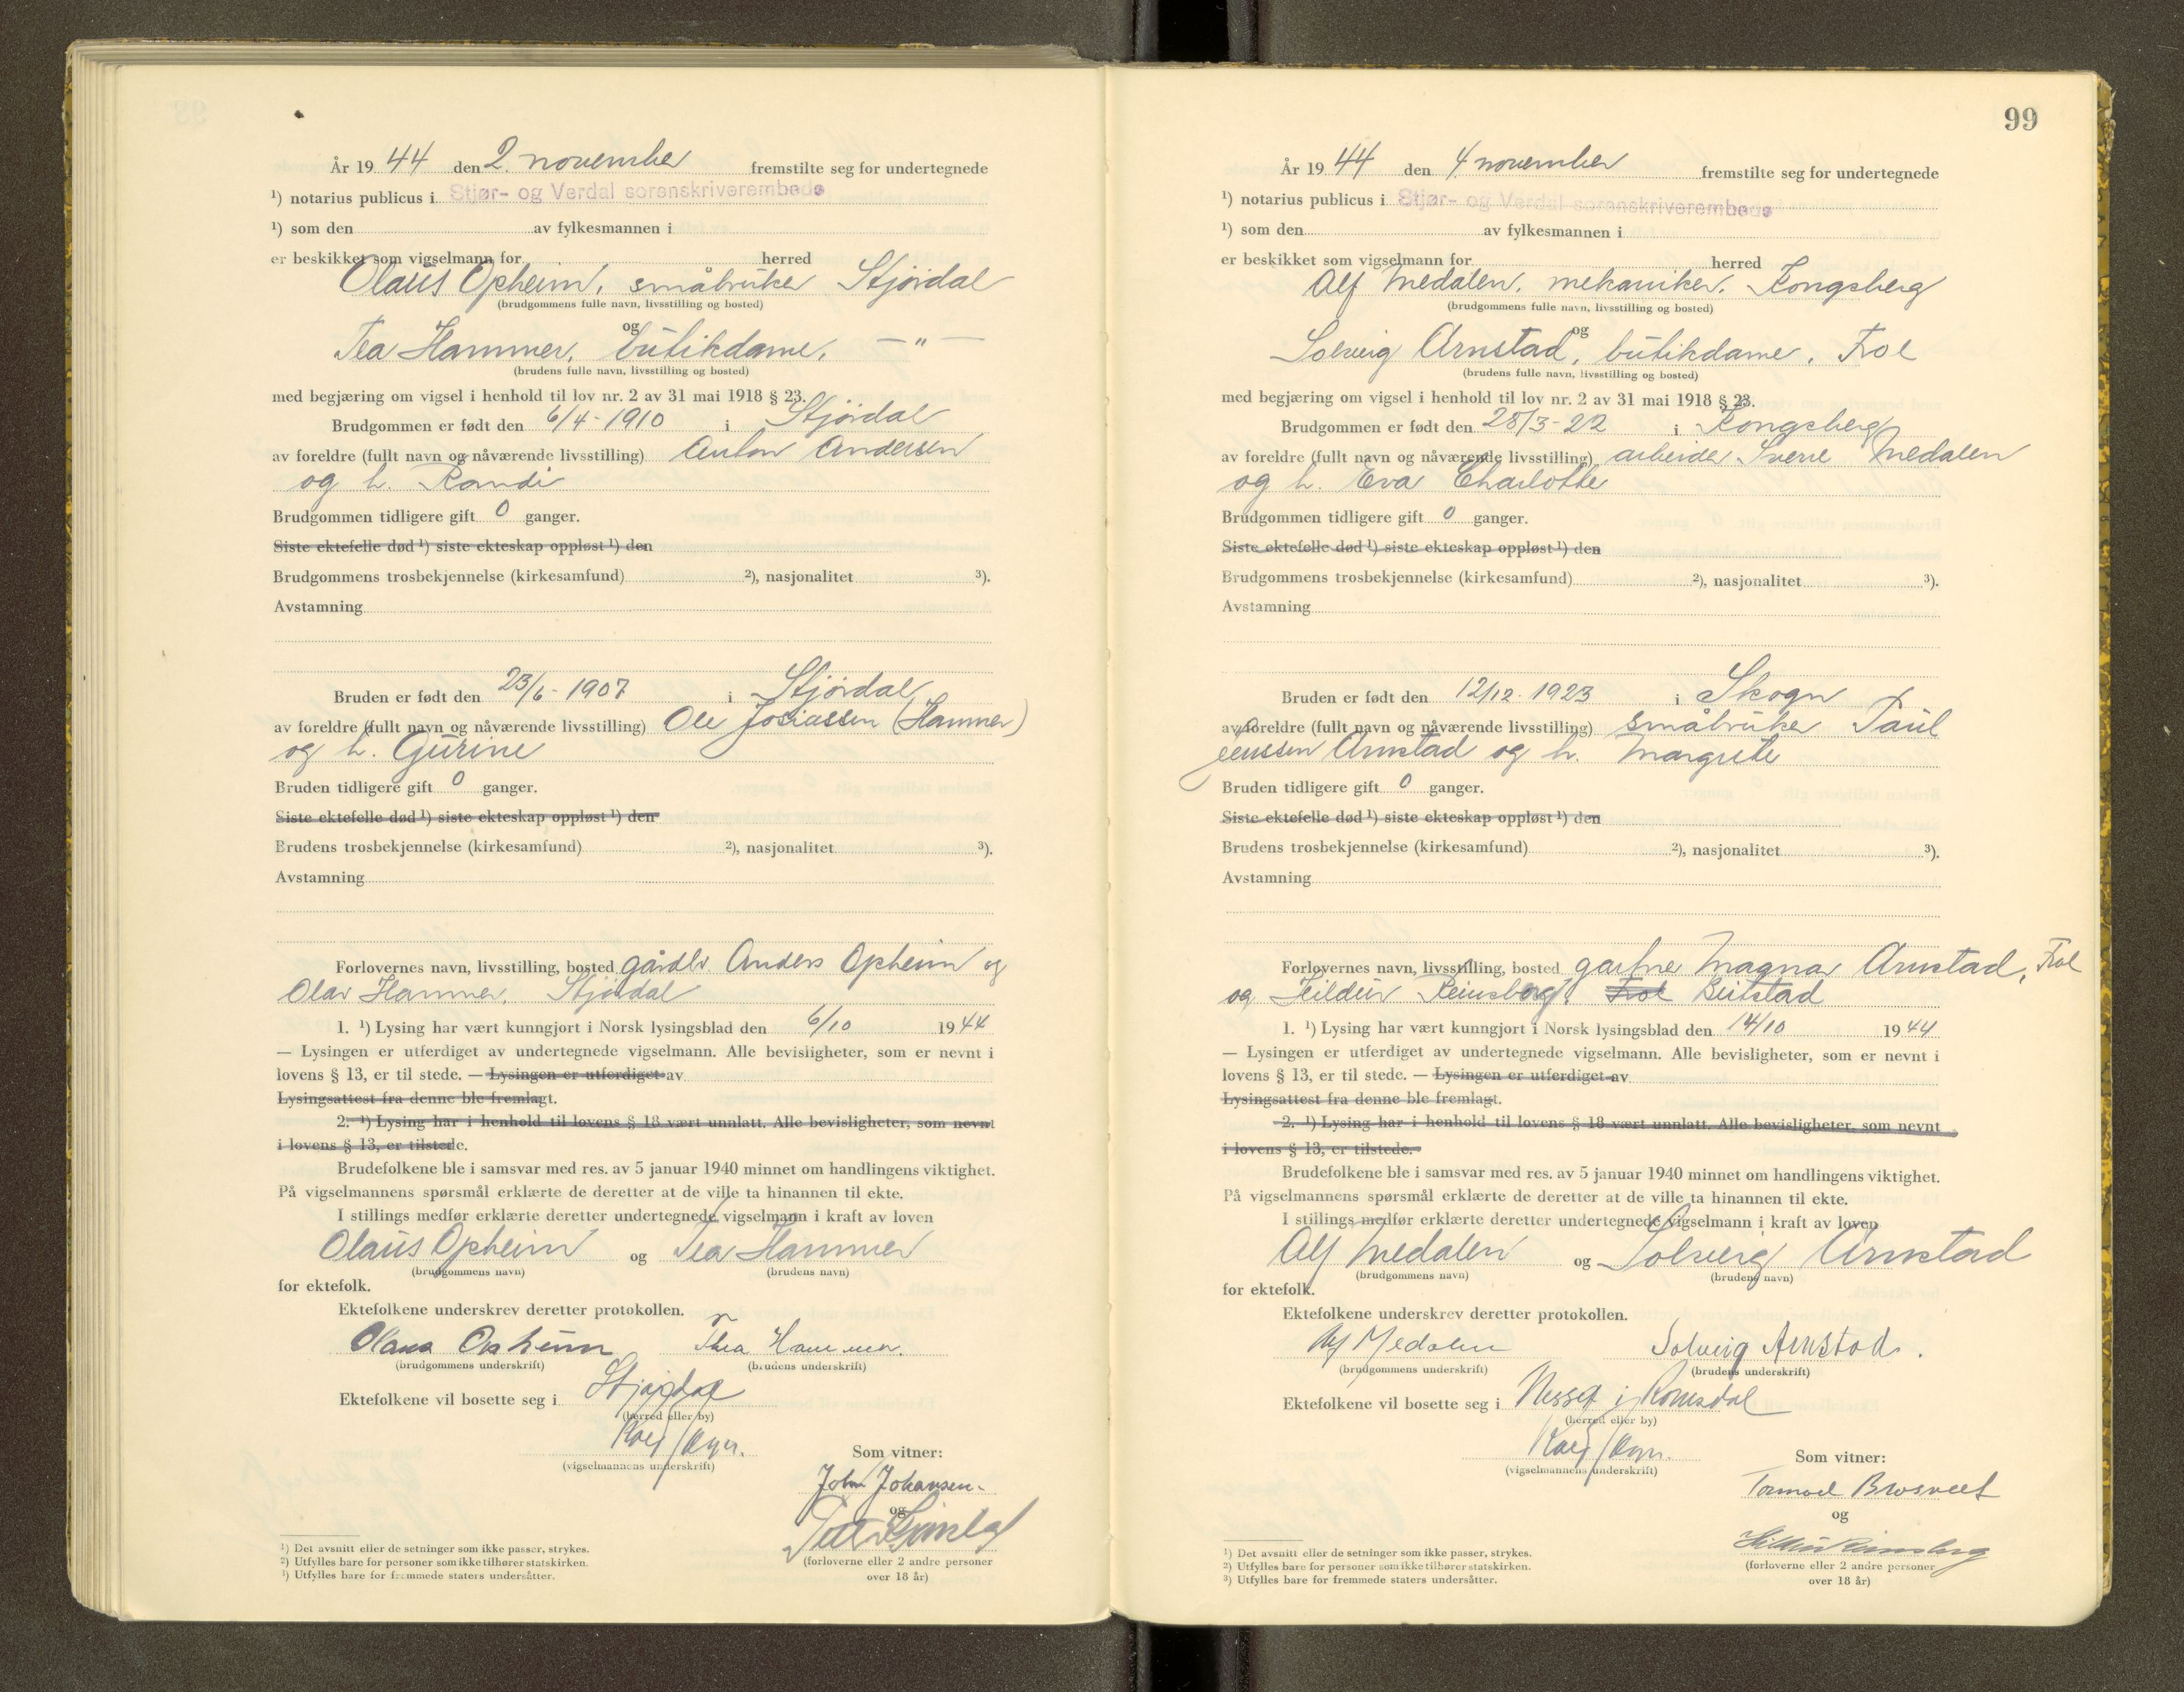 År 19 44 den 2. november fremstilte seg for undertegnede
¹) notarius publicus i Stjør- og Verdal sorenskriverembede
¹) som den av fylkesmannen i
er beskikket som vigselmann for herred
Olaus Opheim, småbruker Stjørdal
(brudgommens fulle navn, livsstilling og bosted)
og
Tea Hammer, butikdame, — " —
(brudens fulle navn, livsstilling og bosted)
med begjæring om vigsel i henhold til lov nr. 2 av 31 mai 1918 § 23.
Brudgommen er født den 6/4 - 1910 i Stjørdal
av foreldre (fullt navn og nåværende livsstilling) Anton Andersen
og h. Randi
Brudgommen tidligere gift 0 ganger.
Siste ektefelle død ¹) siste ekteskap oppløst ¹) den
Brudgommens trosbekjennelse (kirkesamfund) ²), nasjonalitet ³).
Avstamning
Bruden er født den 23/6 - 1907 i Stjørdal
av foreldre (fullt navn og nåværende livsstilling) Ole Josiassen (Hammer)
og h. Gurine
Bruden tidligere gift 0 ganger.
Siste ektefelle død ¹) siste ekteskap oppløst ¹) den
Brudens trosbekjennelse (kirkesamfund) ²), nasjonalitet ³).
Avstamning
Forlovernes navn, livsstilling, bosted gårdbr. Anders Opheim og
Olav Hammer, Stjørdal
1. ¹) Lysing har vært kunngjort i Norsk lysingsblad den 6/10 19 44
— Lysingen er utferdiget av undertegnede vigselmann. Alle bevisligheter, som er nevnt i
lovens § 13, er til stede. — Lysingen er utferdiget av
Lysingsattest fra denne ble fremlagt.
2. ¹) Lysing har i henhold til lovens § 18 vært unnlatt. Alle bevisligheter, som nevnt
i lovens § 13, er tilstede.
Brudefolkene ble i samsvar med res. av 5 januar 1940 minnet om handlingens viktighet.
På vigselmannens spørsmål erklærte de deretter at de ville ta hinannen til ekte.
I stillings medfør erklærte deretter undertegnede vigselmann i kraft av loven
Olaus Opheim og Tea Hammer
(brudgommens navn) (brudens navn)
for ektefolk.
Ektefolkene underskrev deretter protokollen.
Olaus Opheim Thea Hammer.
(brudgommens underskrift) (brudens underskrift)
Ektefolkene vil bosette seg i Stjørdal
(herred eller by)
(vigselmannens underskrift)
Som vitner:
John Johansen.
og
(forloverne eller 2 andre personer
over 18 år)
¹) Det avsnitt eller de setninger som ikke passer, strykes.
²) Utfylles bare for personer som ikke tilhører statskirken.
³) Utfylles bare for fremmede staters undersåtter.
99
År 19 44 den 4 november fremstilte seg for undertegnede
¹) notarius publicus i Stjør- og Verdal sorenskriverembede
¹) som den av fylkesmannen i
er beskikket som vigselmann for herred
Alf Medalen, mekaniker, Kongsberg
(brudgommens fulle navn, livsstilling og bosted)
og
Solveig Arnstad, butikdame, Frol
(brudens fulle navn, livsstilling og bosted)
med begjæring om vigsel i henhold til lov nr. 2 av 31 mai 1918 § 23.
Brudgommen er født den 28/3 - 22 i Kongsberg
av foreldre (fullt navn og nåværende livsstilling) arbeider Sverre Medalen
og h. Eva Charlotte
Brudgommen tidligere gift 0 ganger.
Siste ektefelle død ¹) siste ekteskap oppløst ¹) den
Brudgommens trosbekjennelse (kirkesamfund) ²), nasjonalitet ³).
Avstamning
Bruden er født den 12/12. 1923 i Skogn
av foreldre (fullt navn og nåværende livsstilling) småbruker Paul
Jenssen Arnstad og h. Margrete
Bruden tidligere gift 0 ganger.
Siste ektefelle død ¹) siste ekteskap oppløst ¹) den
Brudens trosbekjennelse (kirkesamfund) ²), nasjonalitet ³).
Avstamning
Forlovernes navn, livsstilling, bosted gartner Magnar Arnstad, Frol
og Hildur Reinsberg, Frol Beitstad
1. ¹) Lysing har vært kunngjort i Norsk lysingsblad den 14/10 19 44
— Lysingen er utferdiget av undertegnede vigselmann. Alle bevisligheter, som er nevnt i
lovens § 13, er til stede. — Lysingen er utferdiget av
Lysingsattest fra denne ble fremlagt.
2. ¹) Lysing har i henhold til lovens § 18 vært unnlatt. Alle bevisligheter, som nevnt
i lovens § 13, er tilstede.
Brudefolkene ble i samsvar med res. av 5 januar 1940 minnet om handlingens viktighet.
På vigselmannens spørsmål erklærte de deretter at de ville ta hinannen til ekte.
I stillings medfør erklærte deretter undertegnede vigselmann i kraft av loven
Alf Medalen og Solveig Arnstad
(brudgommens navn) (brudens navn)
for ektefolk.
Ektefolkene underskrev deretter protokollen.
Alf Medalen Solveig Arnstad.
(brudgommens underskrift) (brudens underskrift)
Ektefolkene vil bosette seg i Nesset i Romsdal
(herred eller by)
(vigselmannens underskrift)
Som vitner:
Tormod Brosveet
og
Hildur Reinsberg
(forloverne eller 2 andre personer
over 18 år)
¹) Det avsnitt eller de setninger som ikke passer, strykes.
²) Utfylles bare for personer som ikke tilhører statskirken.
³) Utfylles bare for fremmede staters undersåtter.